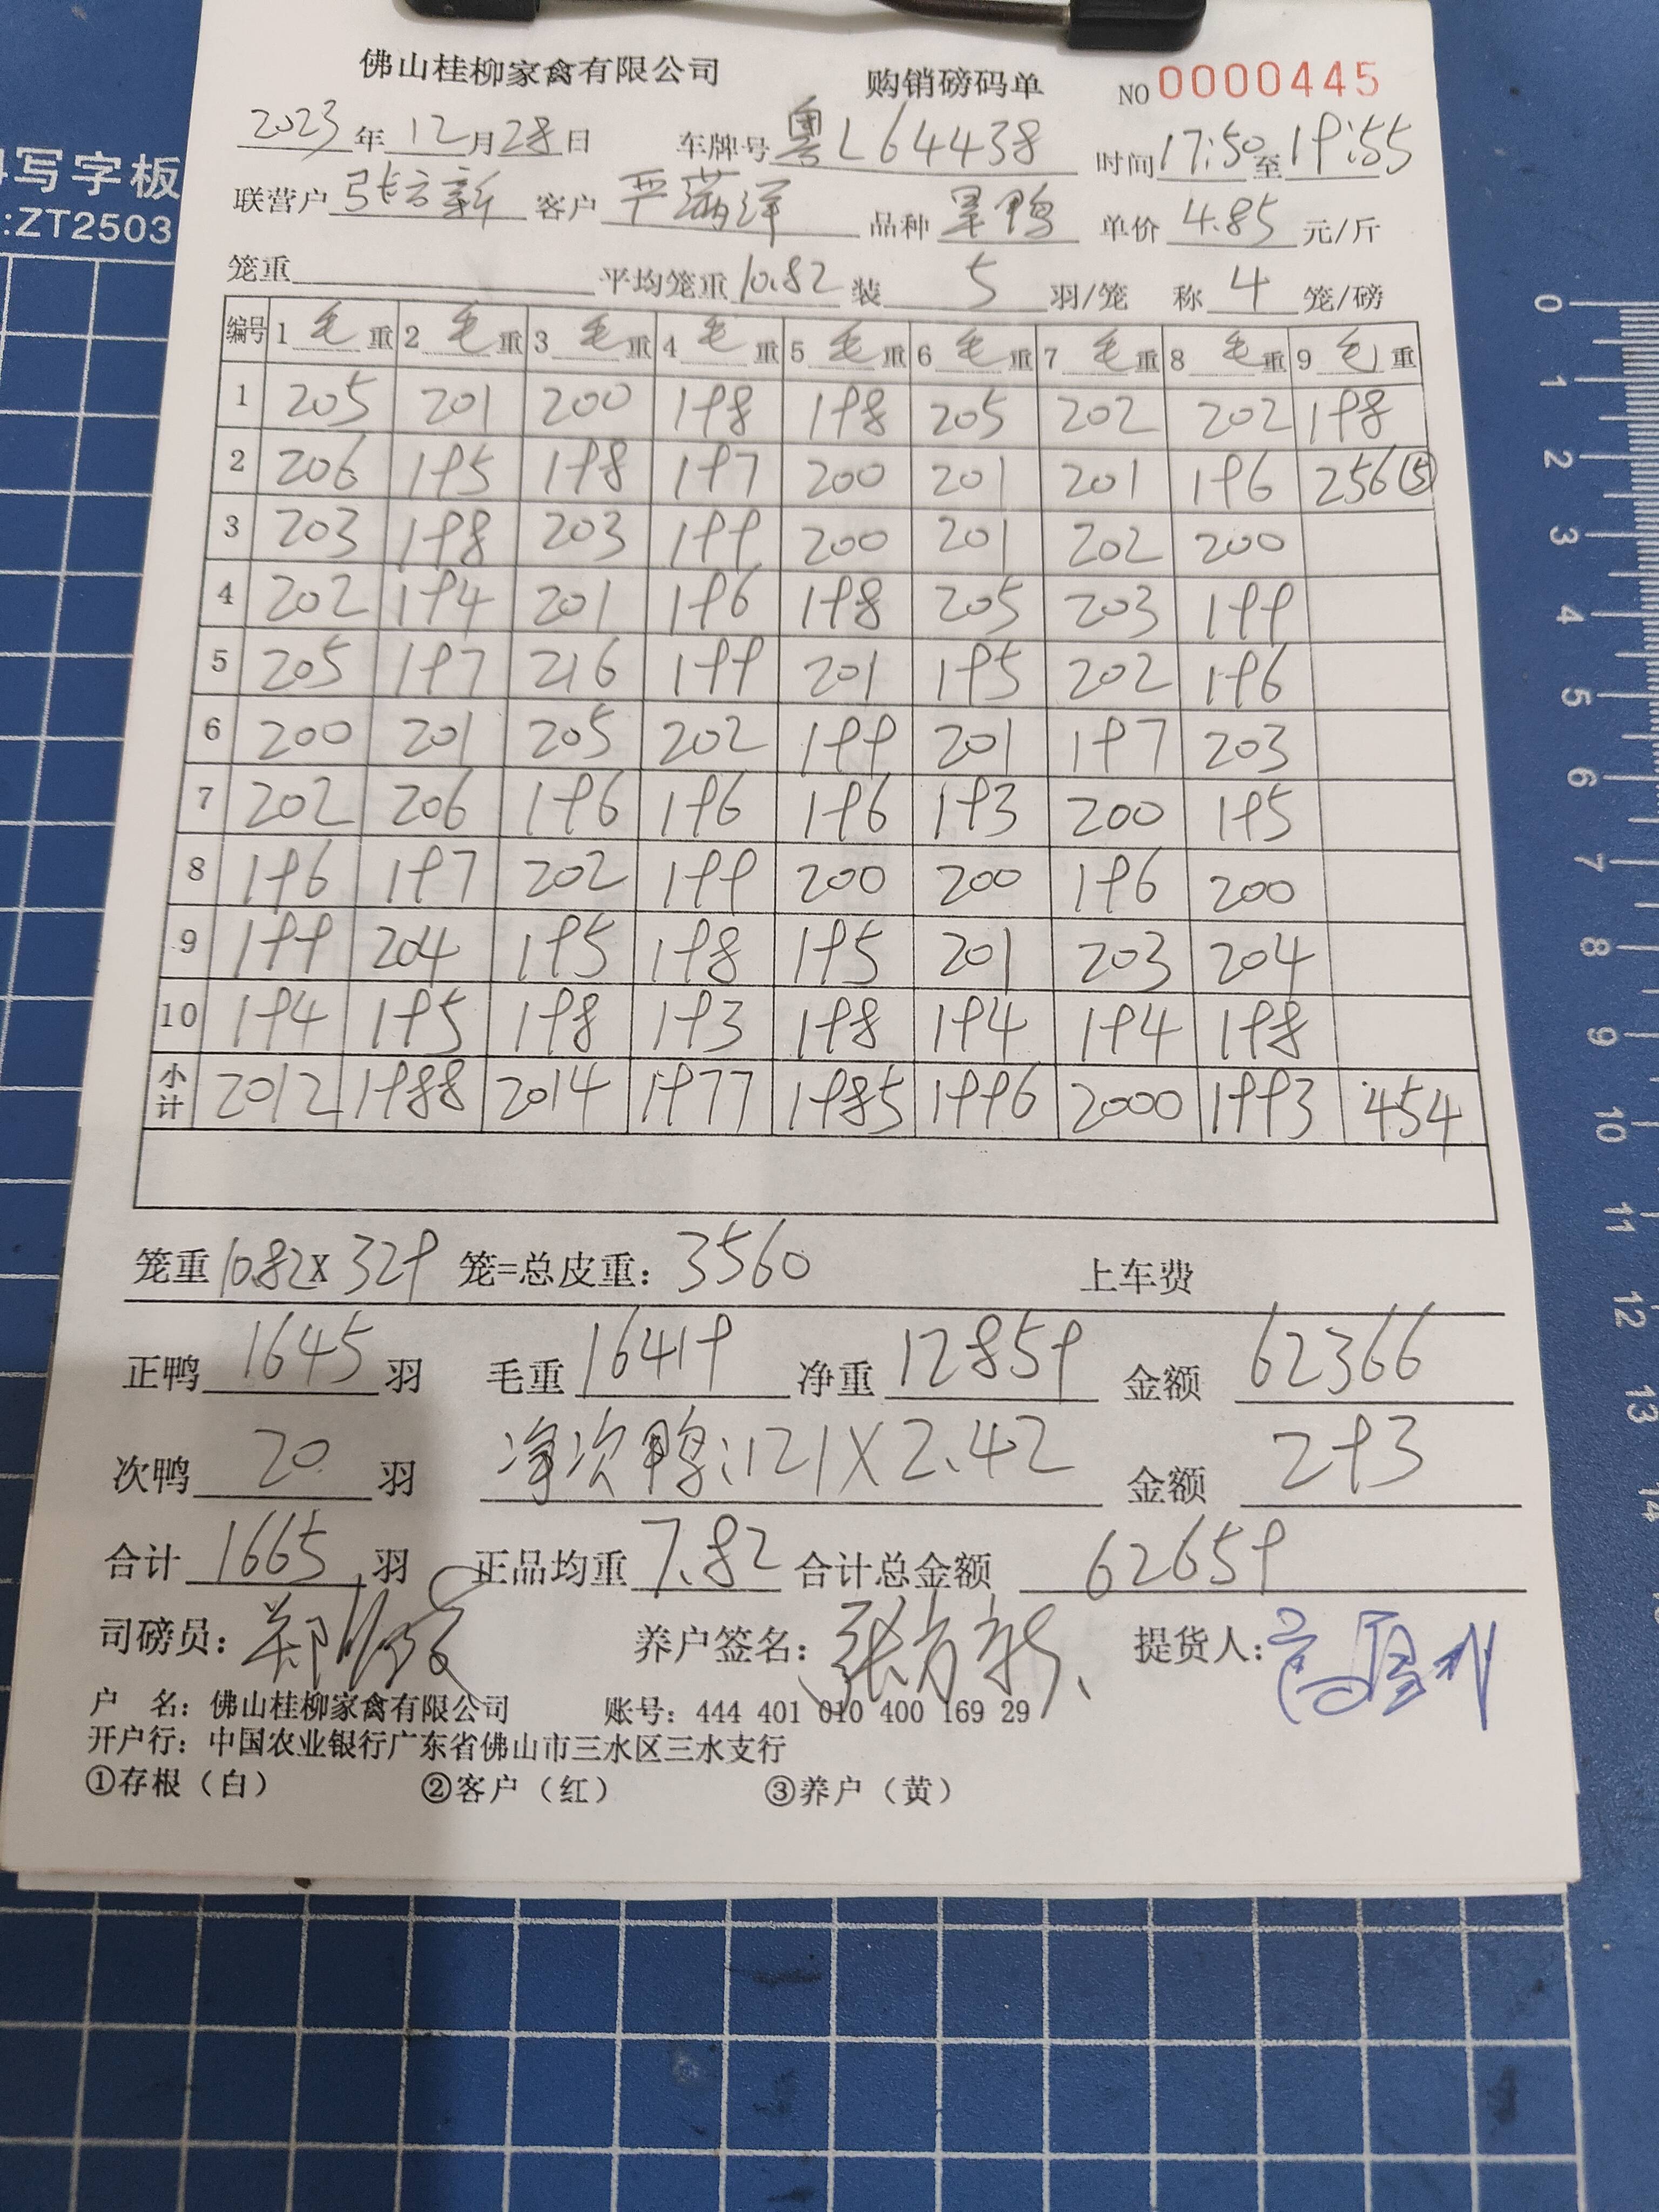 佛山桂柳家禽有限公司 购销磅码单 NO 0000445
2023年12月28日 车牌号粤L64438 时间17:50至19:55
联营户 张方新 客户 严满洋 品种 旱鸭 单价 4.85 元/斤
笼重 平均笼重10.82 装 5 羽/笼 称 4 笼/磅
编号 1 毛重 2 毛重 3 毛重 4 毛重 5 毛重 6 毛重 7 毛重 8 毛重 9 毛重
1 205 201 200 198 198 205 202 202 198
2 206 195 198 197 200 201 201 196 256⑤
3 203 198 203 199 200 201 202 200
4 202 194 201 196 198 205 203 199
5 205 197 216 199 201 195 202 196
6 200 201 205 202 199 201 197 203
7 202 206 196 196 196 193 200 195
8 196 197 202 199 200 200 196 200
9 199 204 195 198 195 201 203 204
10 194 195 198 193 198 194 194 198
小计 2012 1988 2014 1977 1985 1996 2000 1993 454
笼重10.82X 329 笼=总皮重：3560 上车费
正鸭 1645 羽 毛重 16419 净重 12859 金额 62366
次鸭 20 羽 净次鸭：121X2.42 金额 293
合计 1665 羽 正品均重 7.82 合计总金额 62659
司磅员： 养户签名：张方新 提货人：
户 名：佛山桂柳家禽有限公司 账号：444 401 010 400 169 29
开户行：中国农业银行广东省佛山市三水区三水支行
①存根（白） ②客户（红） ③养户（黄）
写字板
:ZT2503
0 1 2 3 4 5 6 7 8 9 10 11 12 13 14